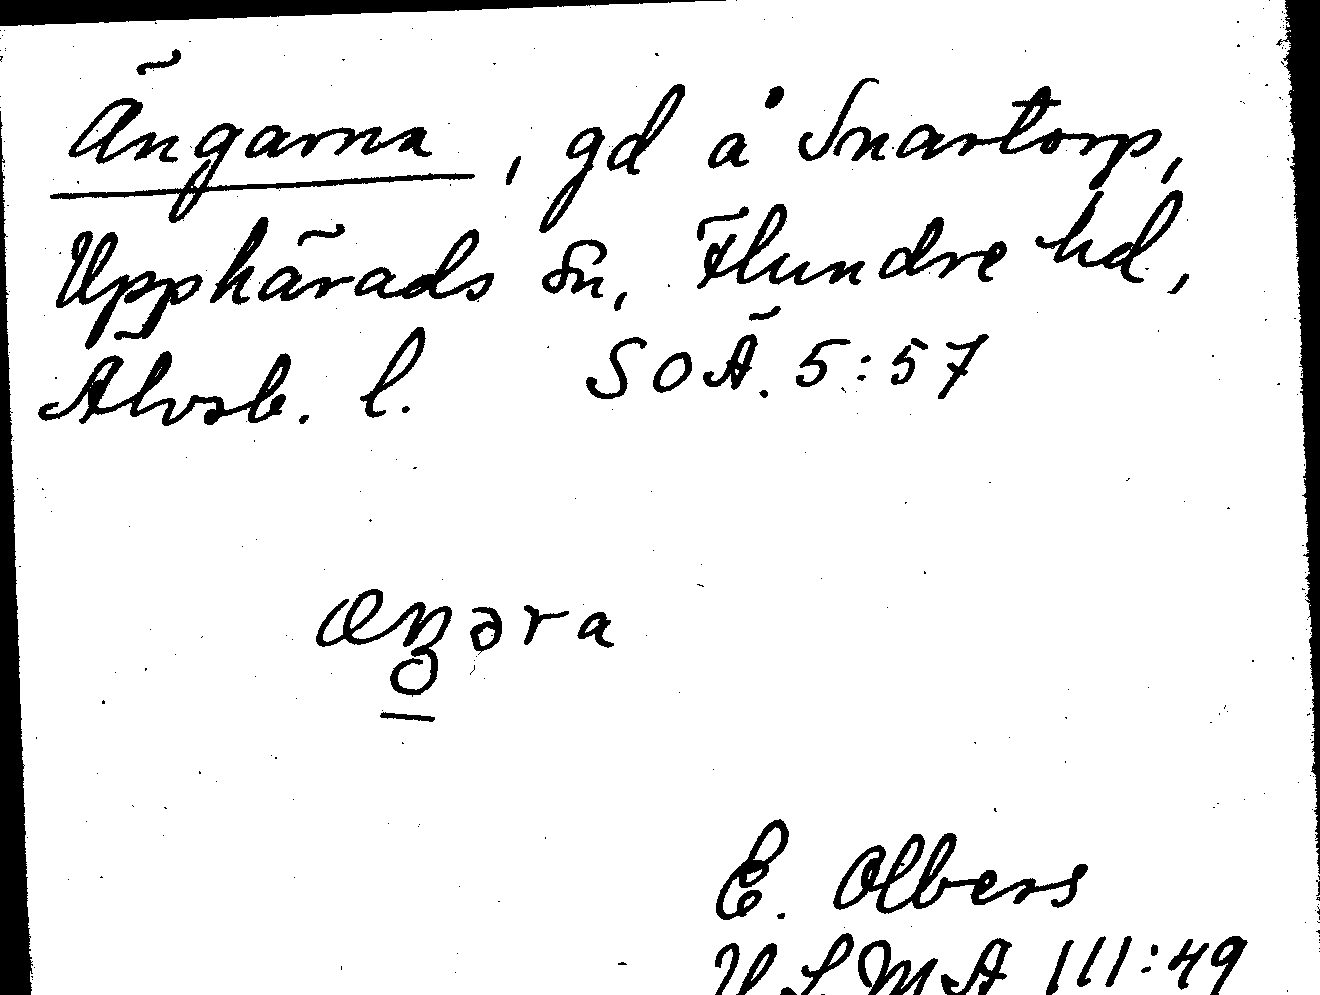 Ängarna, gd å Snartorp,
Upphärads sn, Flundre hd,
Älvsb. l. SOÄ. 5:57
æŋəra
E. Olbers
VFMA III:49